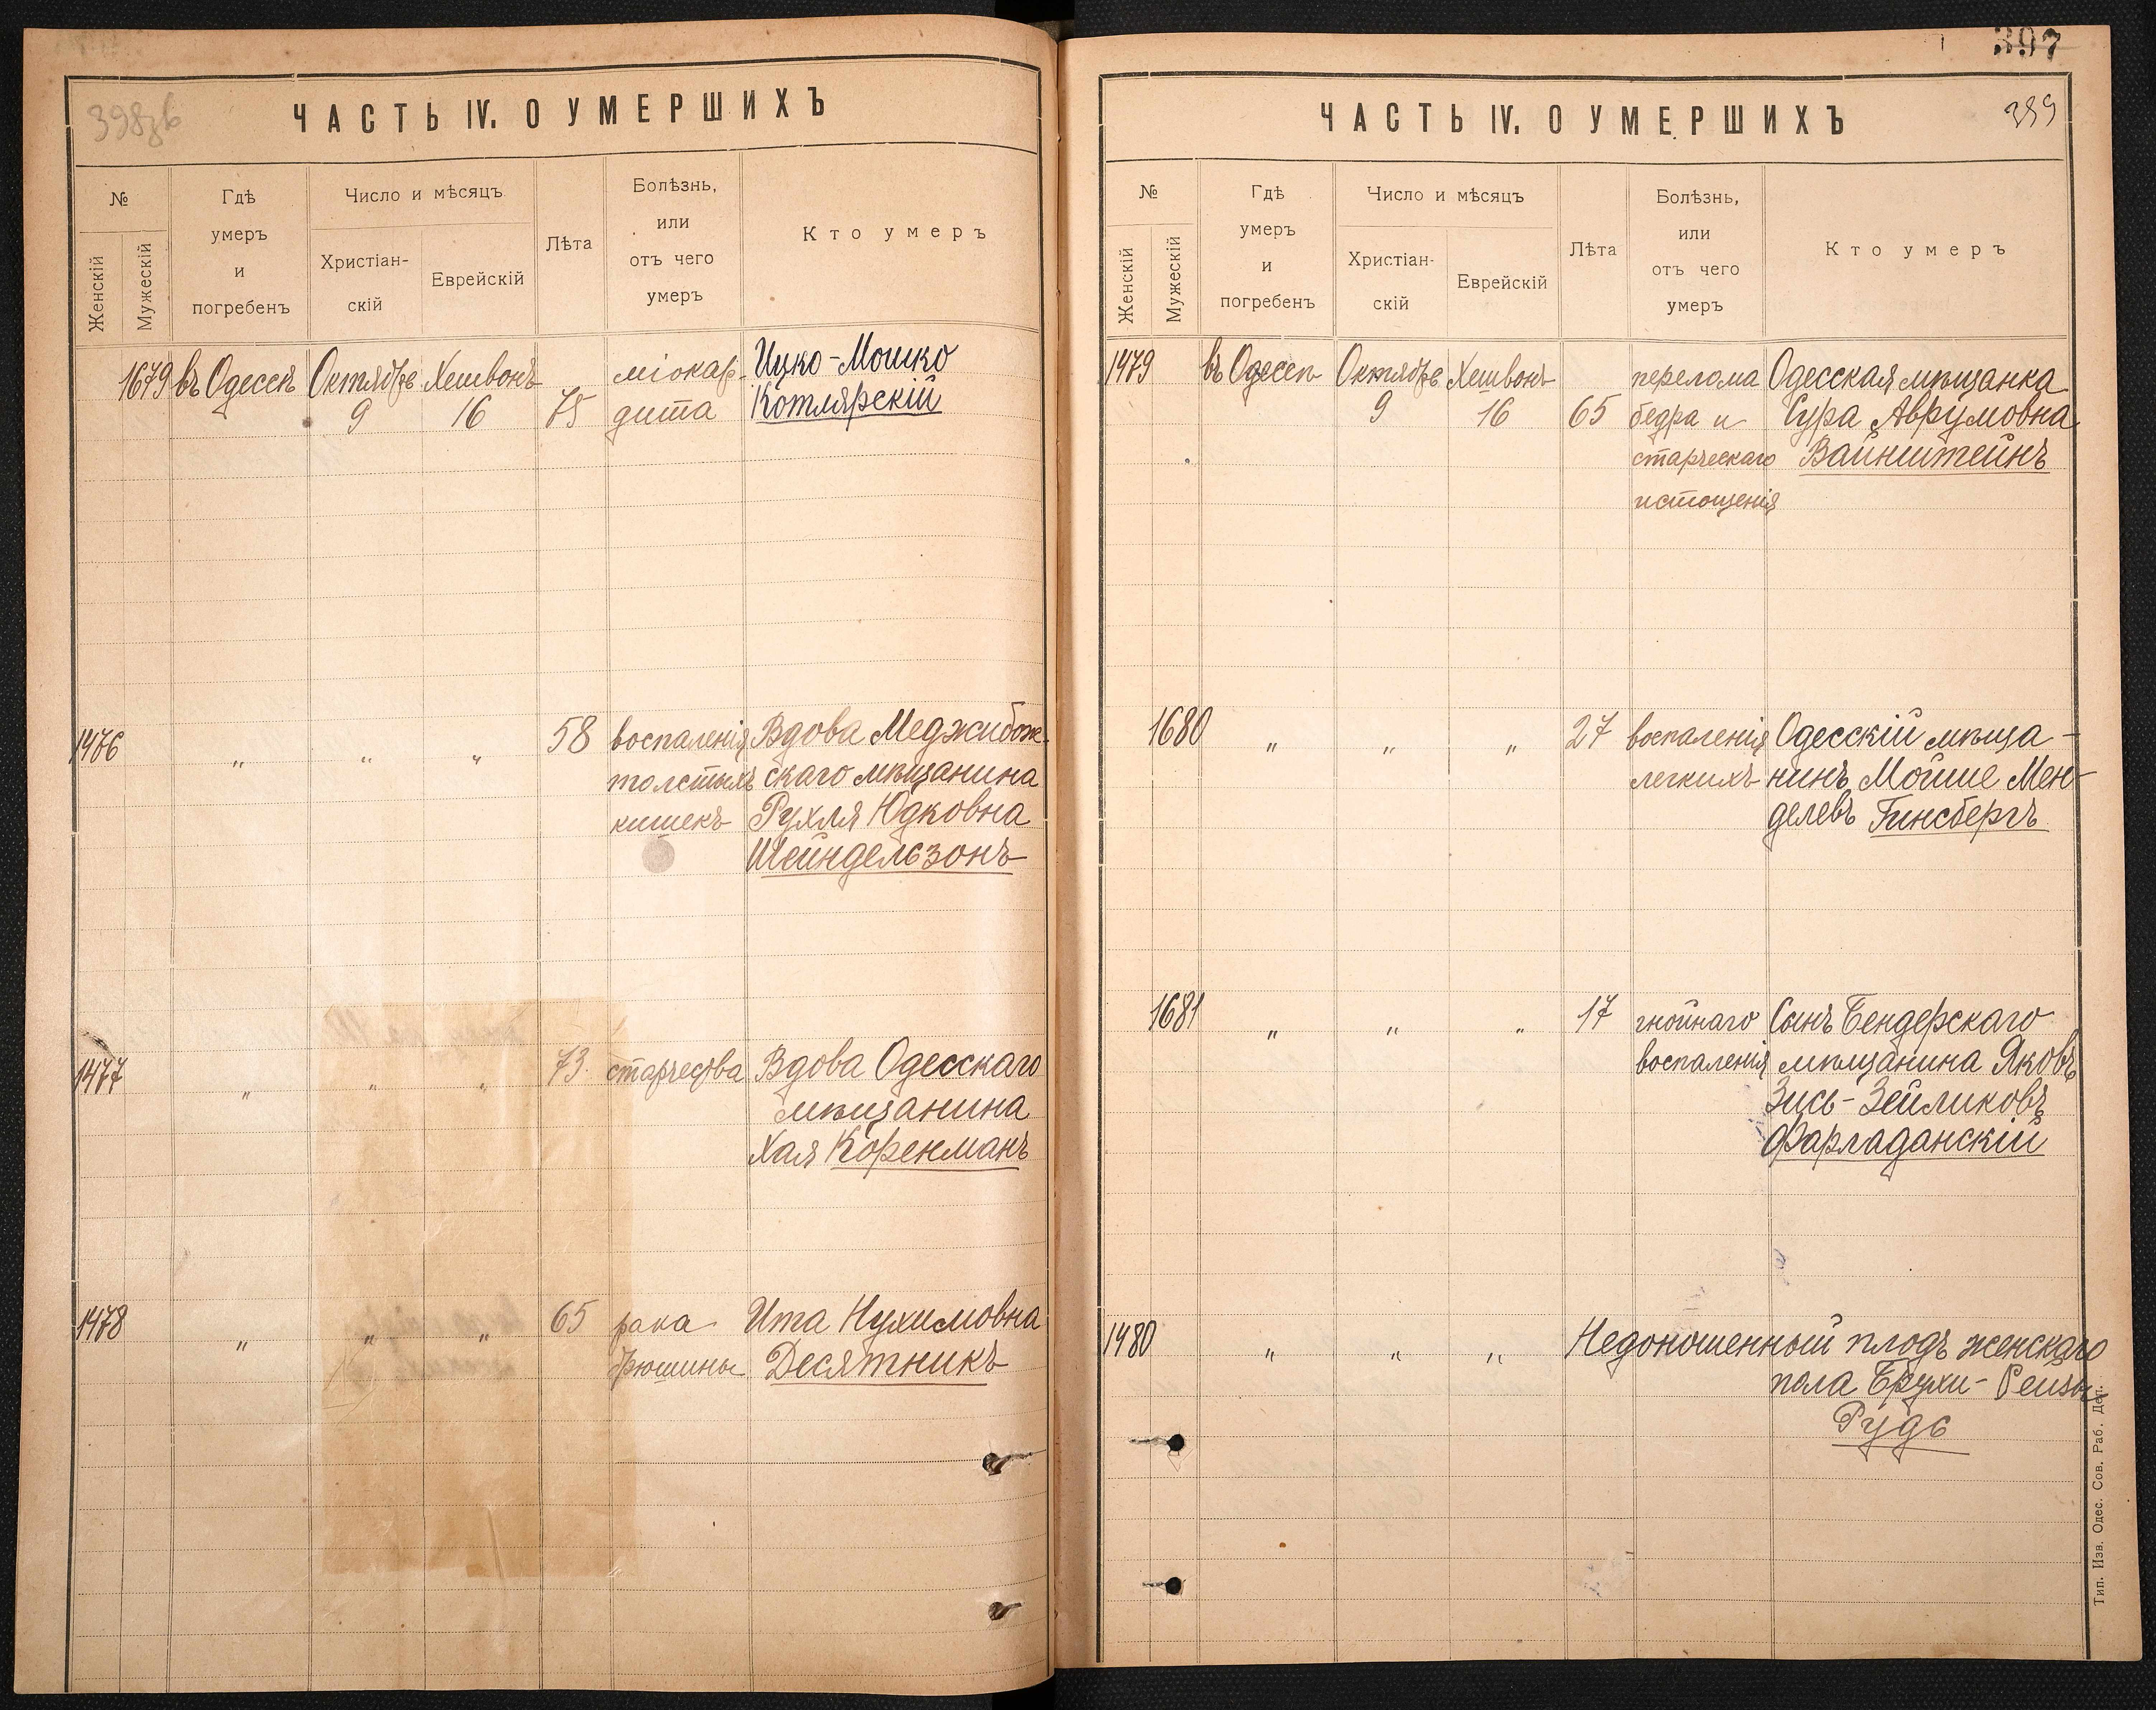 398зв
ЧАСТЬ IV. О УМЕРШИХЪ
№
Женскій
Мужескій
Гдѣ
умеръ
и
погребенъ
Число и мѣсяцъ
Христіан-
скій
Еврейскій
Лѣта
Болѣзнь,
или
отъ чего
умеръ
Кто умеръ
1679 въ Одессѣ Октябрь Хешвонъ міокар- Ицко-Мошко
9 16 75 дита Котлярскій
1476 " " " 58 воспаленія Вдова Меджибож-
толстыхъ скаго мѣщанина
кишекъ Рухля Юдковна
Шейндельзонъ
1477 " " " 73 старчества Вдова Одесскаго
мѣщанина
Хая Коренманъ
1478 " " " 65 рака Ита Нухимовна
брюшины Десятникъ
397
399
ЧАСТЬ IV. О УМЕРШИХЪ
№
Женскій
Мужескій
Гдѣ
умеръ
и
погребенъ
Число и мѣсяцъ
Христіан-
скій
Еврейскій
Лѣта
Болѣзнь,
или
отъ чего
умеръ
Кто умеръ
1479 въ Одессѣ Октябрь Хешвонъ перелома Одесская мѣщанка
9 16 65 бедра и Сура Аврумовна
старческаго Вайнштейнъ
истощенія
1680 " " " 27 воспаленія Одесскій мѣща-
легкихъ нинъ Мойше Мен-
делевъ Гинсбергъ
1681 " " " 17 гнойнаго Сынъ Бендерскаго
воспаленія мѣщанина Яковъ
Зись-Зейликовъ
Фарладанскій
1480 " " " Недоношенный плодъ женскаго
пола Брухи-Рейзы
Рудь
Тип. Изв. Одес. Сов. Раб. Деп.